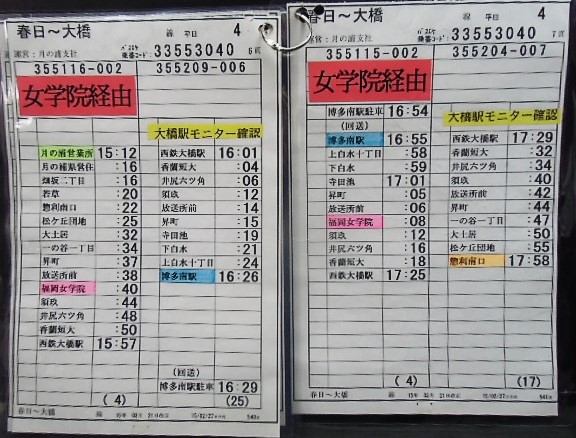 春日～大橋 線 平日 4
運営：月の浦支社 33553040 6頁
355116-002 355209-006
女学院経由
大橋駅モニター確認
月の浦営業所 15:12
月の浦県営住 :16
畑坂二丁目 :16
若草 :20
惣利南口 :22
松ケ丘団地 :25
大土居 :32
一の谷一丁目 :34
昇町 :37
放送所前 :38
福岡女学院 :40
須玖 :44
井尻六ツ角 :48
香蘭短大 :50
西鉄大橋駅 15:57
(4)
西鉄大橋駅 16:01
香蘭短大 :04
井尻六ツ角 :06
須玖 :12
放送所前 :14
昇町 :15
寺田池 :19
下白水 :21
上白水十丁目 :24
博多南駅 16:26
(回送)
博多南駅駐車 16:29
(25)
春日～大橋 線
春日～大橋 線 平日 4
運営：月の浦支社 33553040 7頁
355115-002 355204-007
女学院経由
大橋駅モニター確認
博多南駅駐車 16:54
(回送)
博多南駅 16:55
上白水十丁目 :58
下白水 :59
寺田池 17:01
昇町 :05
放送所前 :06
福岡女学院 :08
須玖 :12
井尻六ツ角 :16
香蘭短大 :18
西鉄大橋駅 17:25
(4)
西鉄大橋駅 17:29
香蘭短大 :32
井尻六ツ角 :34
須玖 :40
放送所前 :42
昇町 :44
一の谷一丁目 :47
大土居 :50
松ケ丘団地 :55
惣利南口 17:58
(17)
春日～大橋 線